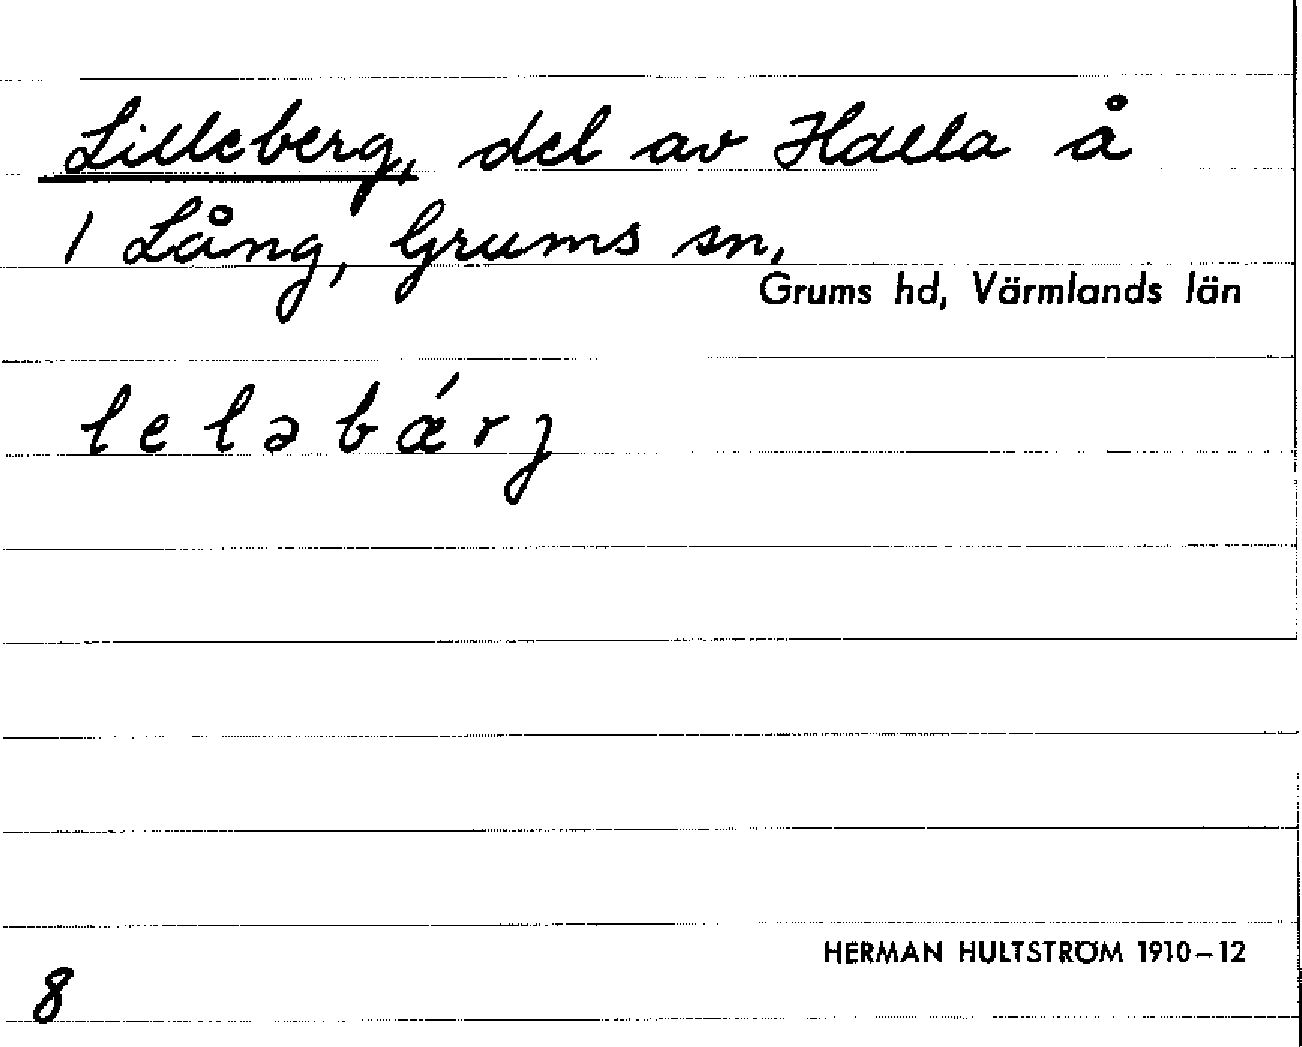 Lilleberg, del av Hdlla å
1 Lång, Grums sn,
Grums hd, Värmlands län
l e l ə b ǽ r j
HERMAN HULTSTRÖM 1910–12
8